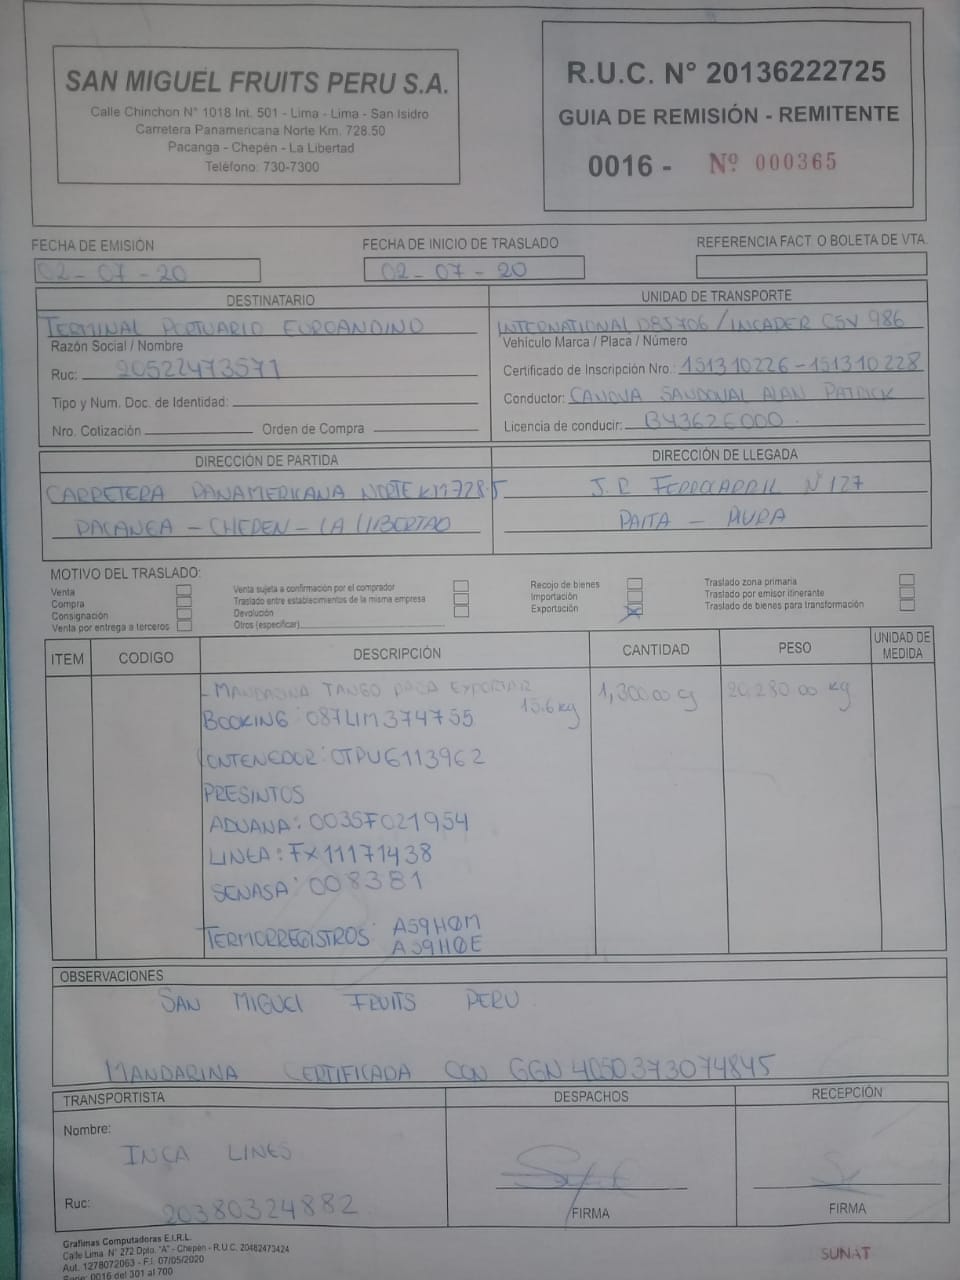 SAN MIGUEL FRUITS PERU S.A.
Calle Chinchon N° 1018 Int. 501 - Lima - Lima - San Isidro
Carretera Panamericana Norte Km. 728.50
Pacanga - Chepén - La Libertad
Teléfono: 730-7300
R.U.C. N° 20136222725
GUIA DE REMISIÓN - REMITENTE
0016 - Nº 000365
FECHA DE EMISIÓN
02-07-20
FECHA DE INICIO DE TRASLADO
02-07-20
REFERENCIA FACT O BOLETA DE VTA.
DESTINATARIO
TERMINAL PORTUARIO EUROANDINO
Razón Social / Nombre
Ruc: 20522473571
Tipo y Num. Doc. de Identidad:
Nro. Cotización Orden de Compra
UNIDAD DE TRANSPORTE
INTERNATIONAL D8J706 / INCADER CSV 986
Vehículo Marca / Placa / Número
Certificado de Inscripción Nro.: 151310226-151310228
Conductor: CANOVA SANDOVAL ALAN PATRICK
Licencia de conducir: B43626000
DIRECCIÓN DE PARTIDA
CARRETERA PANAMERICANA NORTE KM728.5
PACANGA - CHEPEN - LA LIBERTAD
DIRECCIÓN DE LLEGADA
J.R FERROCARRIL N°127
PAITA - PIURA
MOTIVO DEL TRASLADO:
Venta
Compra
Consignación
Venta por entrega a terceros
Venta sujeta a confirmación por el comprador
Traslado entre establecimientos de la misma empresa
Devolución
Otros (especificar)
Recojo de bienes
Importación
Exportación
Traslado zona primaria
Traslado por emisor itinerante
Traslado de bienes para transformación
ITEM CODIGO DESCRIPCIÓN CANTIDAD PESO UNIDAD DE MEDIDA
- MANDARINA TANGO PARA EXPORTAR 1,300.00 20,280.00 kg
15.6 kg
BOOKING: 087LIM374755
CONTENEDOR: OTPU6113962
PRESINTOS
ADUANA: 0035F021954
LINEA: FX11171438
SENASA: 008381
TERMORREGISTROS: A59H0M
A59H0E
OBSERVACIONES
SAN MIGUEL FRUITS PERU
MANDARINA CERTIFICADA CON GGN 4050373074845
TRANSPORTISTA
Nombre:
INCA LINES
Ruc: 20380324882
DESPACHOS
FIRMA
RECEPCIÓN
FIRMA
Grafimas Computadoras E.I.R.L.
Calle Lima. N° 272 Dpto. "A" - Chepén - R.U.C. 20482473424
Aut. 1278072063 - F.I. 07/05/2020
Serie: 0016 del 301 al 700
SUNAT